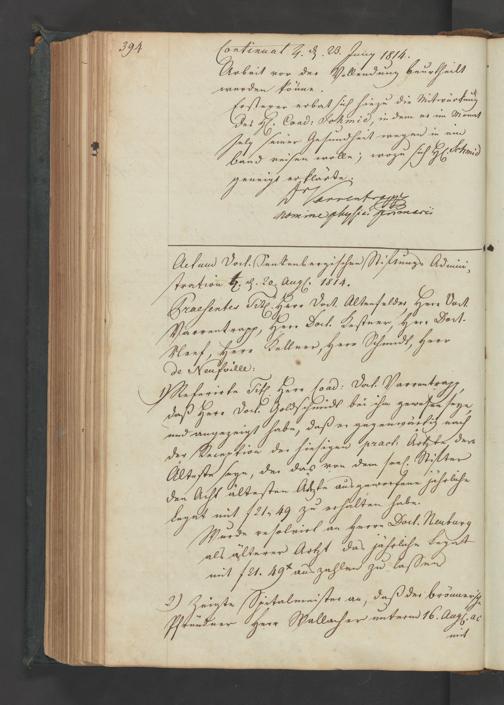 394
Continuat F. d. 23. Juny 1814.
Arbeit vor der Vollendung beurtheilt
werden könne.
Ersterer erbat sich hiezu die Mitwürkung
des H. Coad: Schmid, indem er im Monat
July seiner Gesundheit wegen in ein
Bad reisen wolle; wozu sich H. Schmid
geneigt erklärte.
Dr Varrentrapp
nomine physici primarii
Actum Doct. Senkenbergischen Stiftungs Admini-
stration d. 20. Aug. 1814.
Praesentes Tit. Herr Doct. Altenfelder, Herr Doct.
Varrentrapp, Herr Doct. Kestner, Herr Doct.
Neef, Herr Kellner, Herr Schmidt, Herr
de Neufville:
1) Referirte Tit. Herr Coad: Doct. Varrentrapp,
daß Herr Doct. Goldschmidt bei ihm gewesen seye,
und angezeigt habe, daß er gegenwärtig nach
der Reception der hiesigen pract. Aerzte der
Älteste seye, der das von dem seel. Stifter
den Acht ältesten Aerzte ausgeworfene jährliche
Legat mit f 21. 49 zu erhalten habe.
Wurde resolvirt an Herrn Doct. Neuburg
als älterer Arzt das jährliche Legat
mit f 21. 49 x auszahlen zu lassen
2) Zeigte Spitalmeister an, daß der brönnerische
Pfründner Herr Wallacher unterm 16. Aug. ac
mit